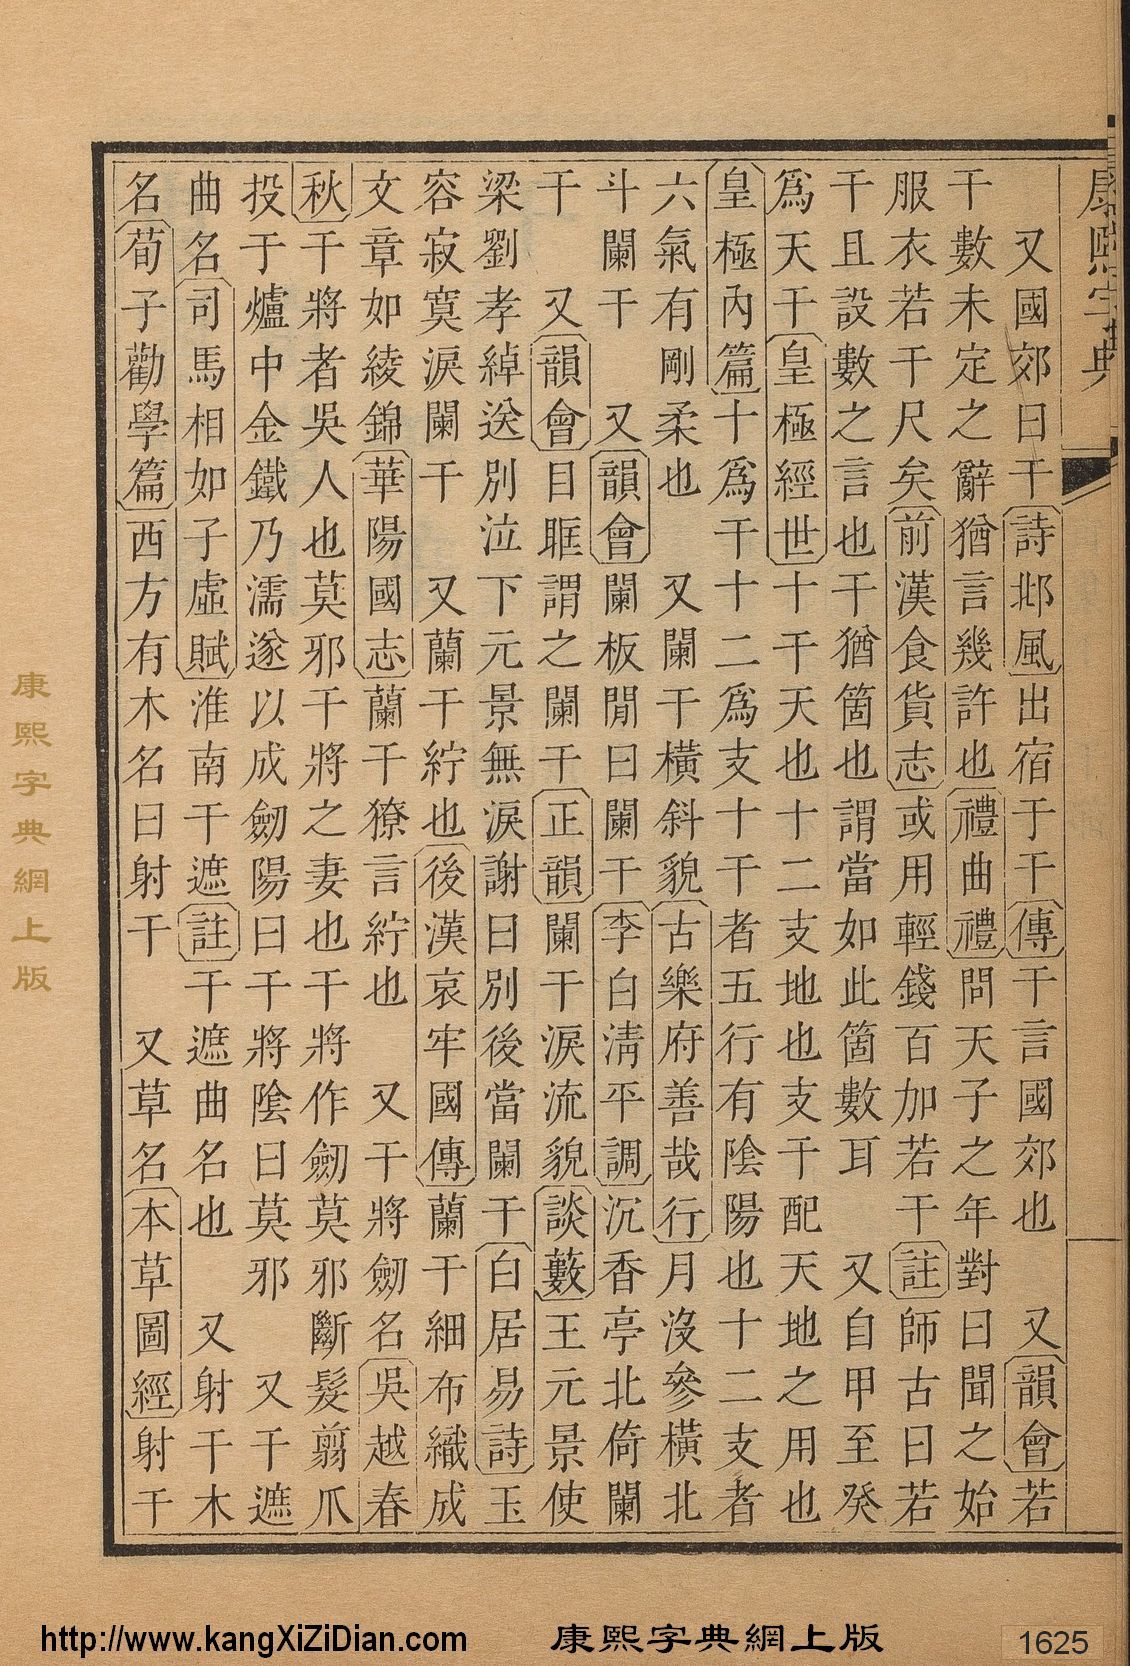 康熙字典
又國郊曰干詩邶風出宿于干傳干言國郊也又韻會若
干數未定之辭猶言幾許也禮曲禮問天子之年對曰聞之始
服衣若干尺矣前漢食貨志或用輕錢百加若干註師古曰若
干且設數之言也干猶箇也謂當如此箇數耳又自甲至癸
爲天干皇極經世十干天也十二支地也支干配天地之用也
皇極內篇十爲干十二爲支十干者五行有陰陽也十二支者
六氣有剛柔也又闌干橫斜貌古樂府善哉行月沒參橫北
斗闌干又韻會闌板閒曰闌干李白淸平調沉香亭北倚闌
干又韻會目眶謂之闌干正韻闌干淚流貌談藪王元景使
梁劉孝綽送別泣下元景無淚謝曰別後當闌干白居易詩玉
容寂寞淚闌干又蘭干紵也後漢哀牢國傳蘭干細布織成
文章如綾錦華陽國志蘭干獠言紵也又干將劒名吳越春
秋干將者吳人也莫邪干將之妻也干將作劒莫邪斷髮翦爪
投于爐中金鐵乃濡遂以成劒陽曰干將陰曰莫邪又干遮
曲名司馬相如子虛賦淮南干遮註干遮曲名也又射干木
名荀子勸學篇西方有木名曰射干又草名本草圖經射干
康熙字典網上版
http://www.kangXiZiDian.com
康熙字典網上版
1625